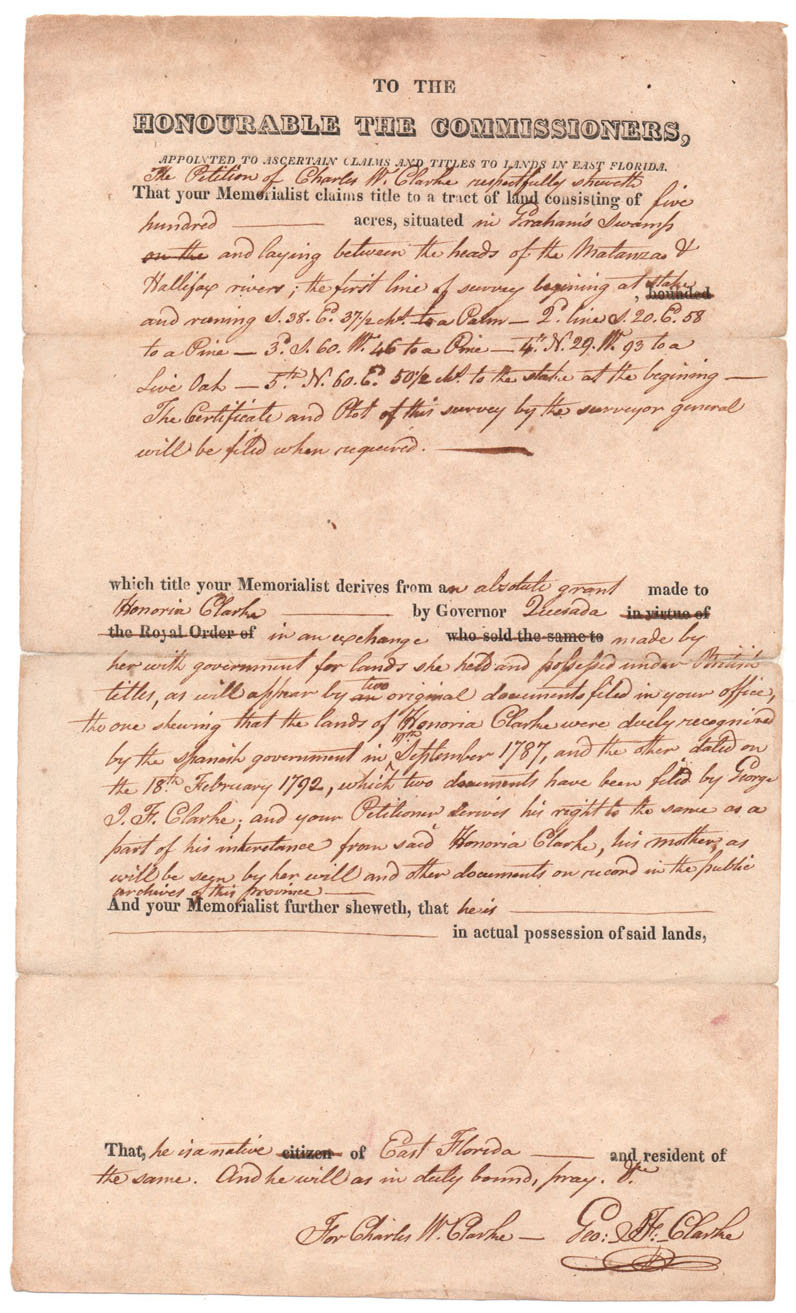 TO THE
HONOURABLE THE COMMISSIONERS,
APPOINTED TO ASCERTAIN CLAIMS AND TITLES TO LANDS IN EAST FLORIDA.
The Petition of Charles W. Clarke respectfully sheweth
That your Memorialist claims title to a tract of land consisting of five
hundred acres, situated in Graham's Swamp
on the and laying between the heads of the Matanzas &
Hallifax rivers; the first line of survey begining at stake, bounded
and running S. 38. Ed. 37 1/2 chs. to a Palm — 2d. line S. 20. Ed. 58
to a Pine — 3d. S. 60. W. 46 to a Pine — 4th. N. 29. W. 93 to a
Live Oak — 5th N. 60. Ed. 50 1/2 chs. to the stake at the begining —
The Certificate and Plot of this survey by the surveyor general
will be filed when required. —
which title your Memorialist derives from an absolute grant made to
Honoria Clarke — by Governor Quesada in virtue of
the Royal Order of in an exchange who sold the same to made by
her with government for lands she held and possessed under British
titles, as will appear by an two original documents filed in your office,
the one shewing that the lands of Honoria Clarke were duely recognized
by the spanish government in September 1787, and the other dated on
the 18th February 1792, which two documents have been filed by George
J. F. Clarke; and your Petitioner derives his right to the same as a
part of his inheretance from said Honoria Clarke, his mother, as
will be seen by her will and other documents on record in the public
archives of this province —
And your Memorialist further sheweth, that he is —
— in actual possession of said lands,
That, he is a native citizen of East Florida — and resident of
the same. And he will as in duty bound, pray. &c
For Charles W. Clarke — Geo: J. F. Clarke